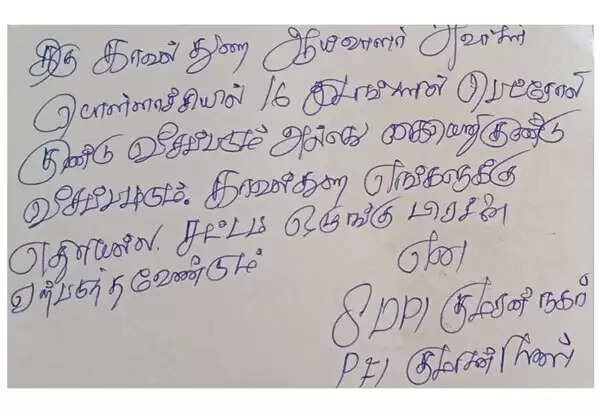 திரு காவல் துறை ஆய்வாளர் அவர்கள்
பொள்ளாச்சியில் 16 இடங்களில் பெட்ரோல்
குண்டு வீசப்படும் அல்லது கையெறிகுண்டு
வீசப்படும். காவல்துறை எங்களுக்கு
எதிரியல்ல. சட்டம் ஒழுங்கு பிரச்சனை
ஏற்படுத்த வேண்டும் என
SDPI குமரன் நகர்
PFI குமரன் நகர்